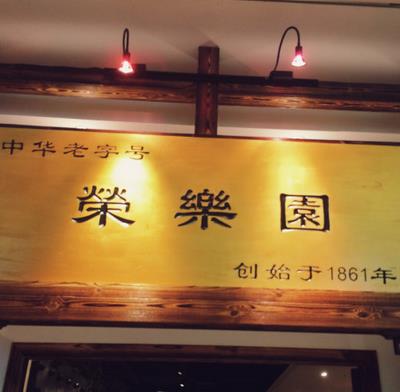 中华老字号
榮樂園
创始于1861年